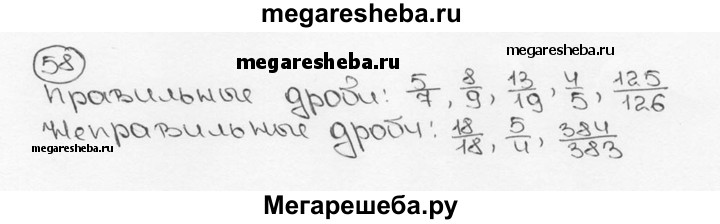 megaresheba.ru
58
megaresheba.ru
megaresheba.ru
правильные дроби: 5/7, 8/9, 13/19, 4/5, 125/126
Неправильные дроби: 18/18, 5/4, 384/383
megaresheba.ru
Мегарешеба.ру